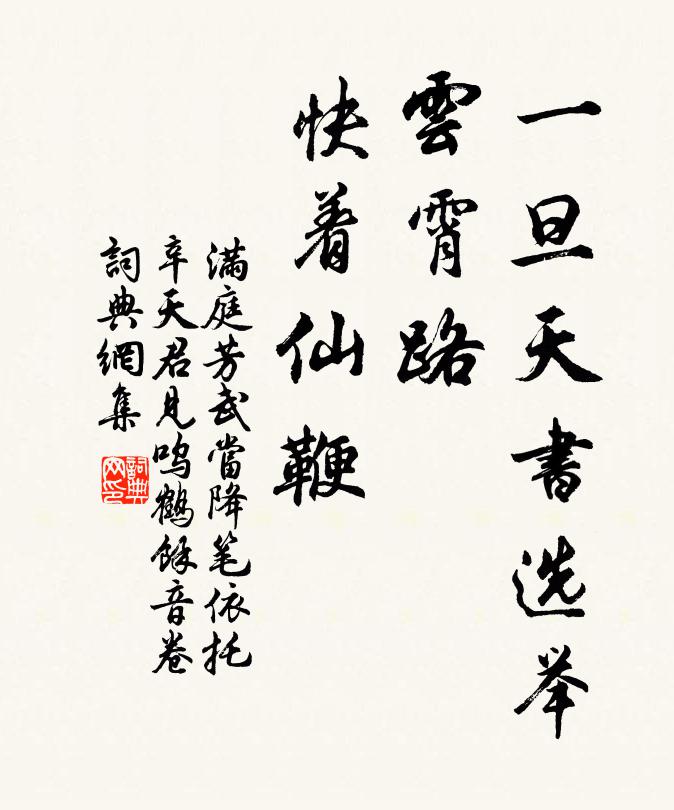 一旦天書选举
雲霄路
快着仙鞭
满庭芳武當降笔依托
辛天君見鸣鶴餘音卷
詞典網集
詞典网印